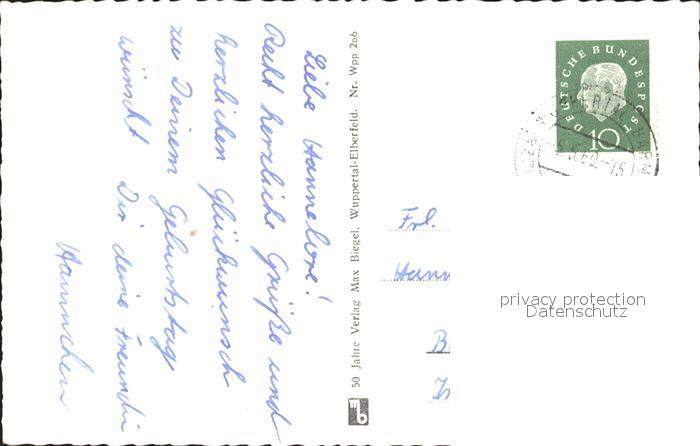 Liebe Hannelore!
Recht herzliche Grüße und
herzlichen Glückwunsch
zu Deinem Geburtstag
wünscht Dir deine Freundin
Hannchen
50 Jahre Verlag Max Biegel, Wuppertal-Elberfeld. Nr. Wpp 206
DEUTSCHE BUNDESPOST
10
Frl.
Hann
privacy protection
Datenschutz